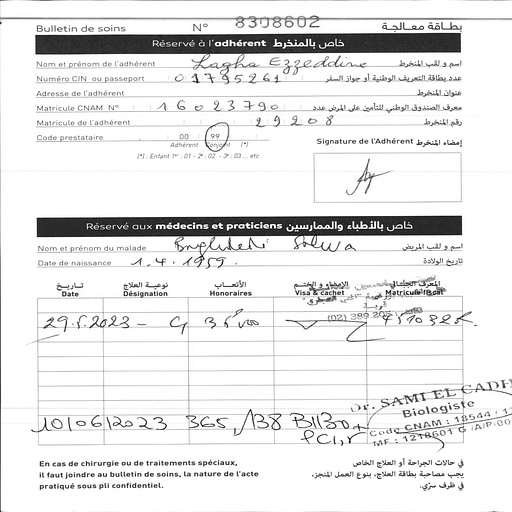 Bulletin de soins N° 8308602 بطاقة معالجة
Réservé à l'adhérent خاص بالمنخرط
Nom et prénom de l'adhérent Lagha Ezzeddine اسم و لقب المنخرط
Numéro CIN ou passeport 01795261 عدد بطاقة التعريف الوطنية أو جواز السفر
Adresse de l'adhérent عنوان المنخرط
Matricule CNAM N° 16023790 معرف الصندوق الوطني للتأمين على المرض عدد
Matricule de l'adhérent 29208 رقم المنخرط
Code prestataire 00 99
Adhérent Conjoint (*)
(*) : Enfant 1er : 01 - 2e : 02 - 3e : 03 ... etc
Signature de l'Adhérent إمضاء المنخرط
Réservé aux médecins et praticiens خاص بالأطباء والممارسين
Nom et prénom du malade Salwa اسم و لقب المريض
Date de naissance 1.4.1959. تاريخ الولادة
تاريخ نوعية العلاج الأتعاب الإمضاء و الختم المعرف الجبائي
Date Désignation Honoraires Visa & cachet Matricule fiscal
29.5.2023 –
10/06/2023 365,138 B1130+
Dr. SAMI EL CADHI
Biologiste
Code CNAM : 18544
MF : 1218601 G /A/P/00
En cas de chirurgie ou de traitements spéciaux,
il faut joindre au bulletin de soins, la nature de l'acte
pratiqué sous pli confidentiel.
في حالات الجراحة أو العلاج الخاص
يجب مصاحبة بطاقة العلاج، بنوع العمل المنجز،
في ظرف سري.